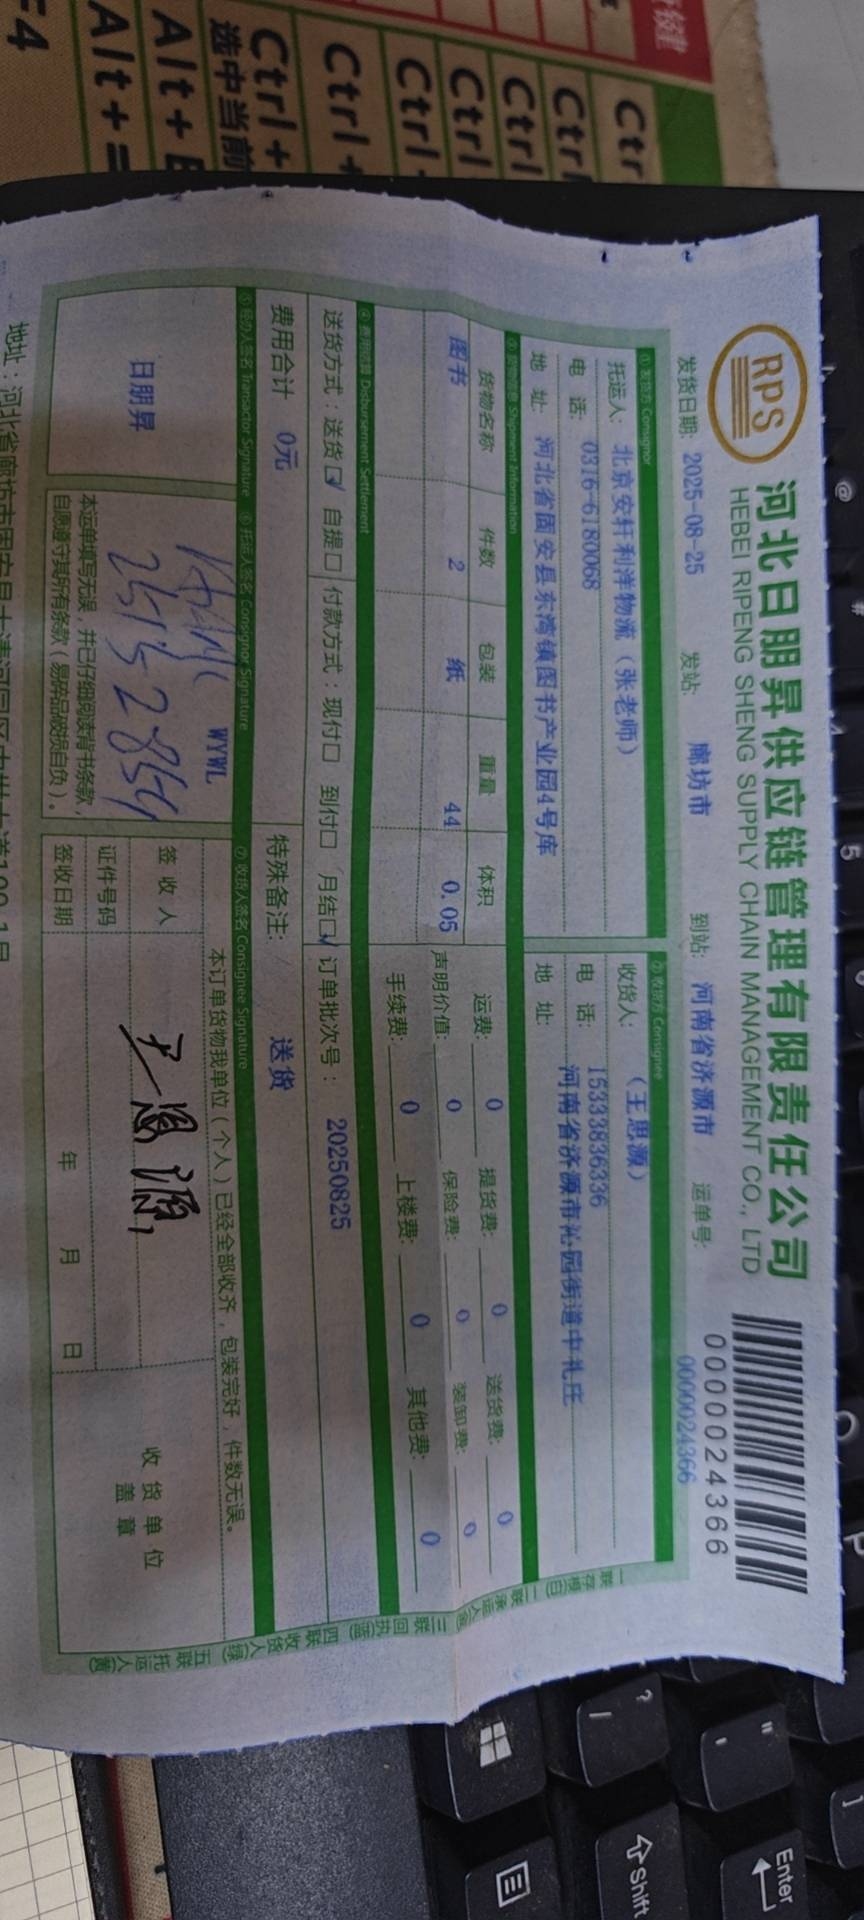 RPS
河北日朋昇供应链管理有限责任公司
HEBEI RIPENG SHENG SUPPLY CHAIN MANAGEMENT CO., LTD
0000024366
发货日期: 2025-08-25 发站: 廊坊市 到站: 河南省济源市 运单号: 0000024366
① 发货方 Consignor
托运人: 北京安轩利洋物流（张老师）
电 话: 0316-6180068
地 址: 河北省固安县东湾镇图书产业园4号库
② 收货方 Consignee
收货人: （王思源）
电 话: 15333836336
地 址: 河南省济源市沁园街道中礼庄
③ 货物信息 Shipment Information
货物名称 件数 包装 重量 体积
图书 2 纸 44 0.05
运费: 0 提货费: 0 送货费: 0
声明价值: 0 保险费: 0 装卸费: 0
手续费: 0 上楼费: 0 其他费: 0
④ 费用结算 Disbursement Settlement
送货方式：送货☑ 自提□ 付款方式：现付□ 到付□ 月结☑ 订单批次号： 20250825
费用合计 0元 特殊备注: 送货
⑤ 经办人签名 Transactor Signature
日朋昇
⑥ 托运人签名 Consignor Signature
WYWL
本运单填写无误，并已仔细阅读背书条款，
自愿遵守其所有条款（易碎品破损自负）。
⑦ 收货人签名 Consignee Signature
本订单货物我单位（个人）已经全部收齐，包装完好，件数无误。
签 收 人 王恩源
证件号码
签收日期 年 月 日
收货单位
盖 章
一联存根(白) 二联承运人(红) 三联回执(蓝) 四联收货人(绿) 五联托运人(黄)
Ctrl+
选中当前
Alt+=
Enter
Shift